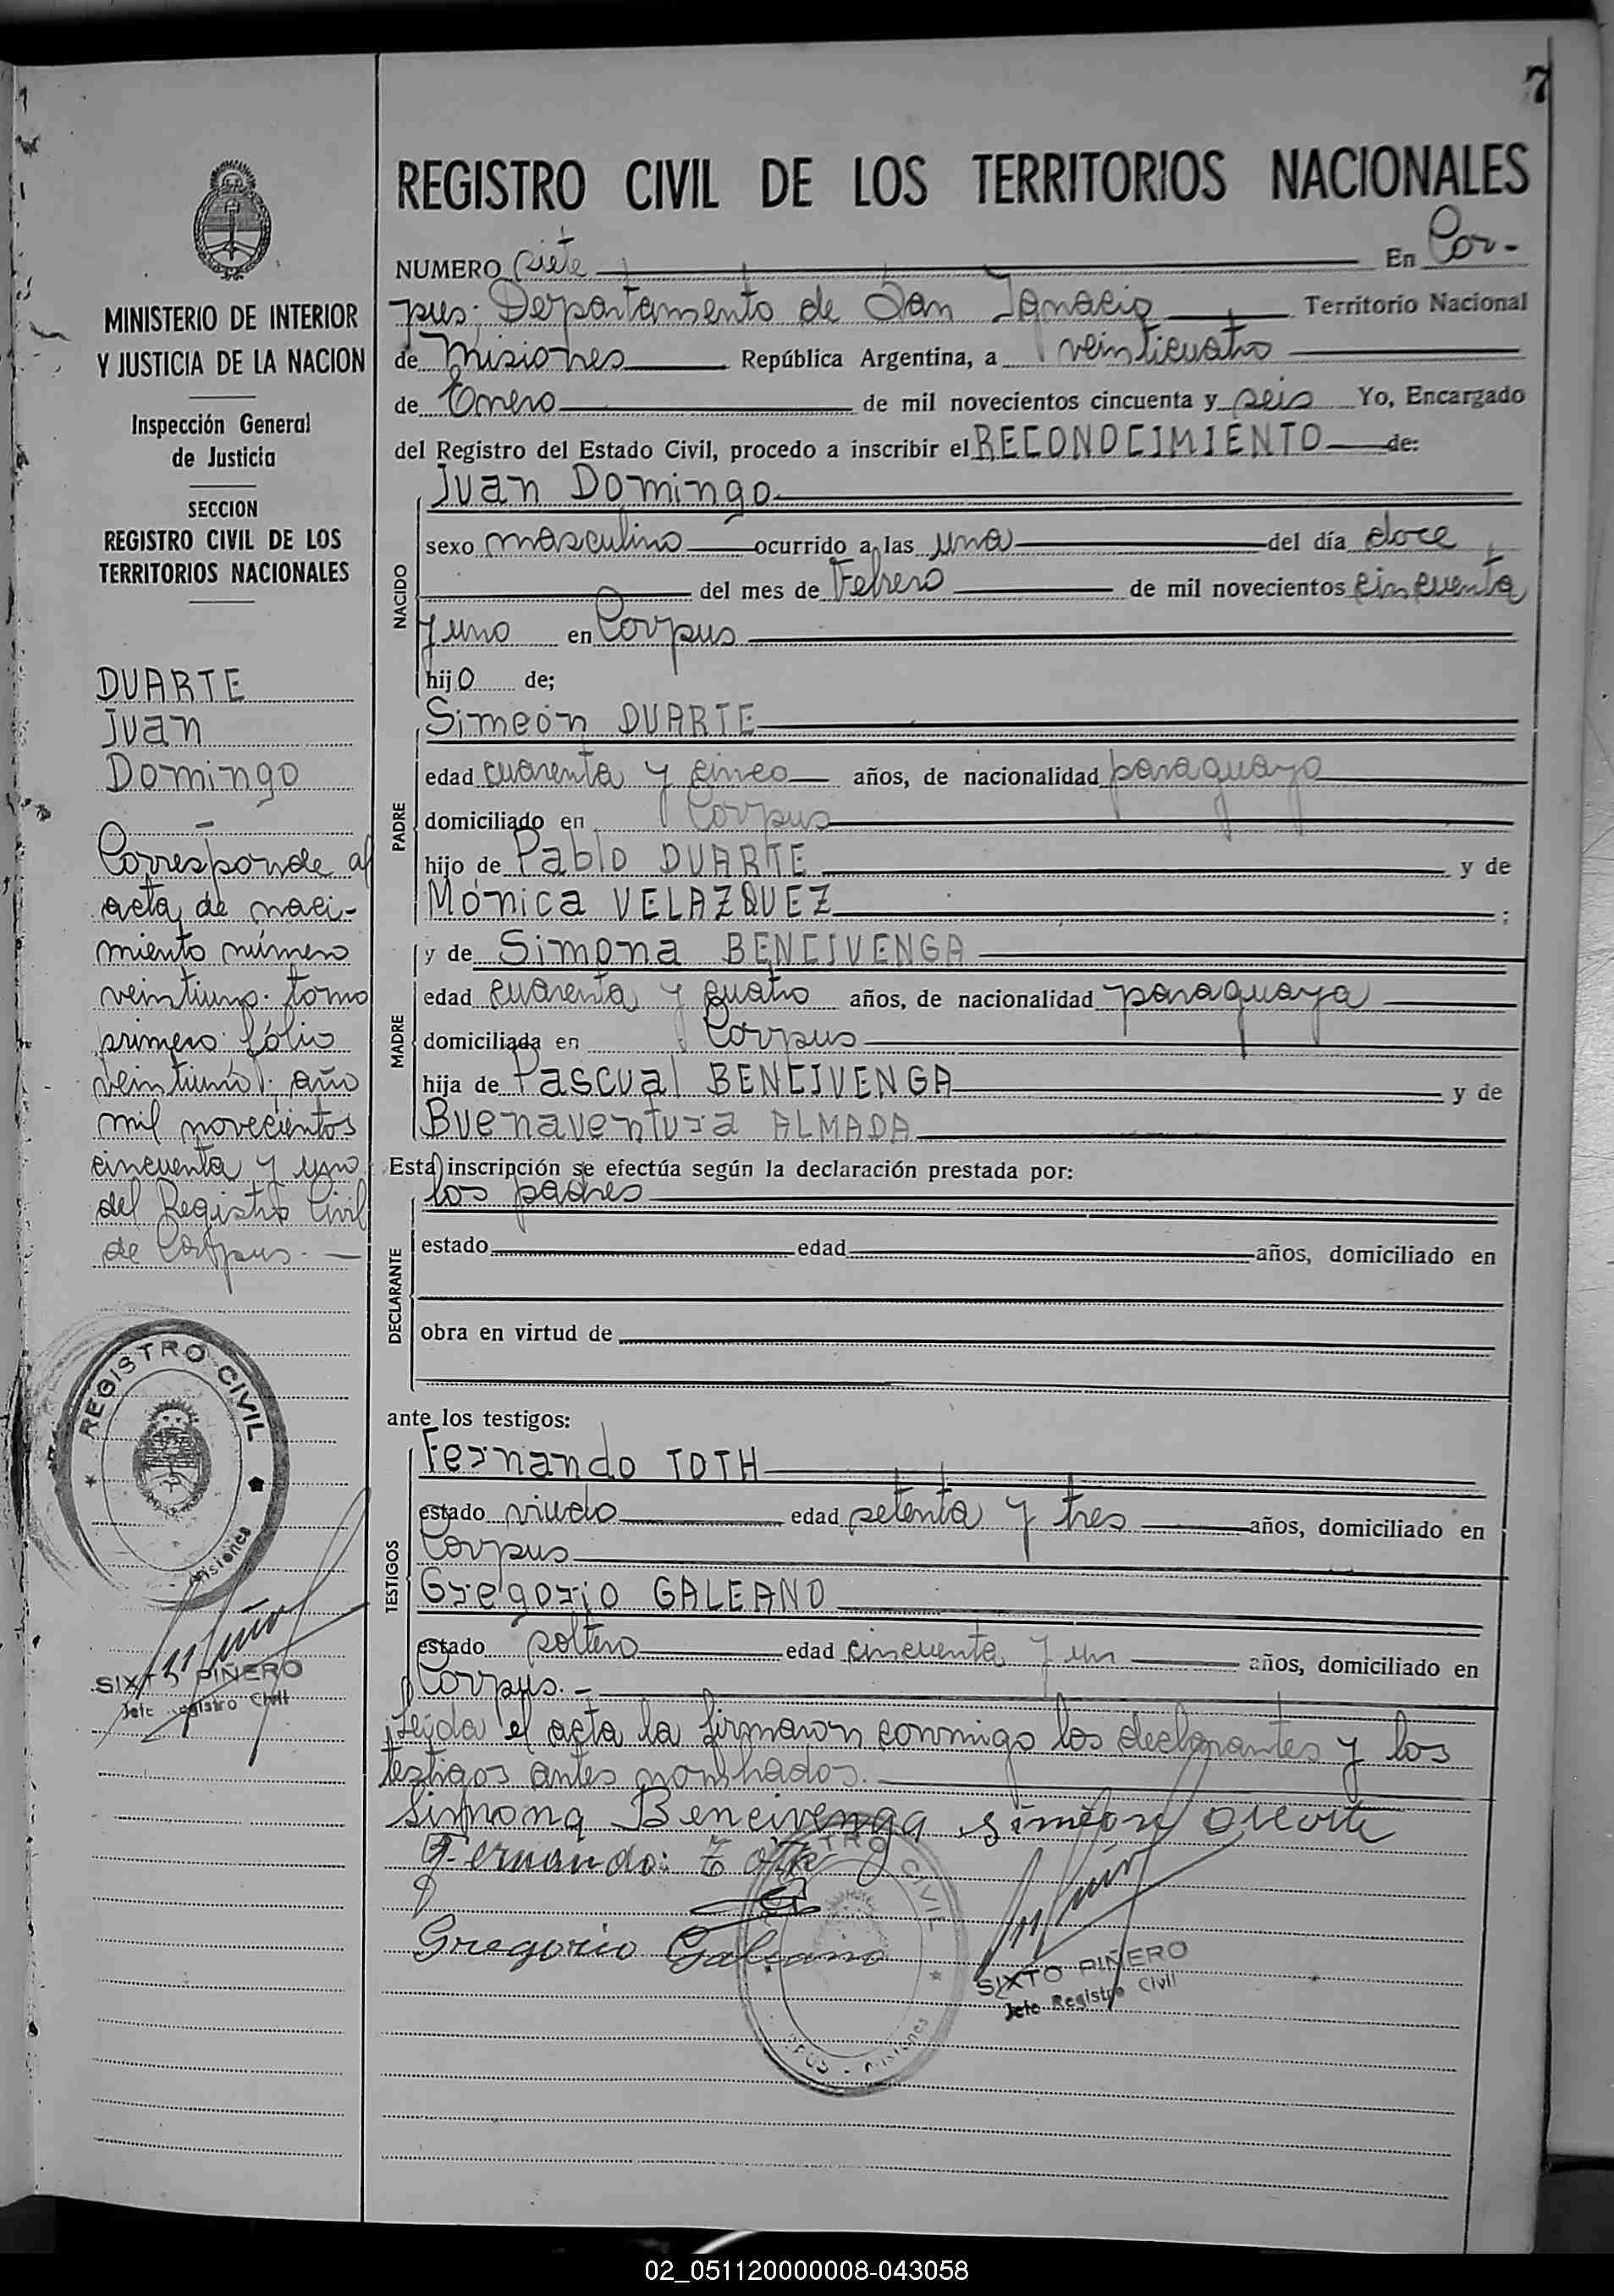 7
MINISTERIO DE INTERIOR
Y JUSTICIA DE LA NACION
Inspección General
de Justicia
SECCION
REGISTRO CIVIL DE LOS
TERRITORIOS NACIONALES
DUARTE
Juan
Domingo
Corresponde al
acta de naci-
miento número
veintiuno. tomo
primero fólio
veintiuno. año
mil novecientos
cincuenta y uno
del Registro Civil
de Corpus.-
REGISTRO CIVIL
Misiones
SIXTO PIÑERO
Jefe Registro Civil
REGISTRO CIVIL DE LOS TERRITORIOS NACIONALES
NUMERO siete En Cor-
pus. Departamento de San Ignacio Territorio Nacional
de Misiones República Argentina, a veinticuatro
de Enero de mil novecientos cincuenta y seis Yo, Encargado
del Registro del Estado Civil, procedo a inscribir el RECONOCIMIENTO de:
NACIDO
Juan Domingo
sexo masculino ocurrido a las una del día doce
del mes de Febrero de mil novecientos cincuenta
y uno en Corpus
hijo de;
PADRE
Simeón DUARTE
edad cuarenta y cinco años, de nacionalidad paraguayo
domiciliado en Corpus
hijo de Pablo DUARTE y de
Mónica VELAZQUEZ ;
MADRE
y de Simona BENCIVENGA
edad cuarenta y cuatro años, de nacionalidad paraguaya
domiciliada en Corpus
hija de Pascual BENCIVENGA y de
Buenaventura ALMADA
Esta inscripción se efectúa según la declaración prestada por:
DECLARANTE
los padres
estado edad años, domiciliado en
obra en virtud de
ante los testigos:
TESTIGOS
Fernando TOTH
estado viudo edad setenta y tres años, domiciliado en
Corpus
Gregorio GALEANO
estado soltero edad cincuenta y un años, domiciliado en
Corpus.-
Leída el acta la firmaron conmigo los declarantes y los
testigos antes nombrados.
Simona Bencivenga Simeon Duarte
Fernando: Toth
Gregorio Galeano
SIXTO PIÑERO
Jefe Registro Civil
02_051120000008-043058